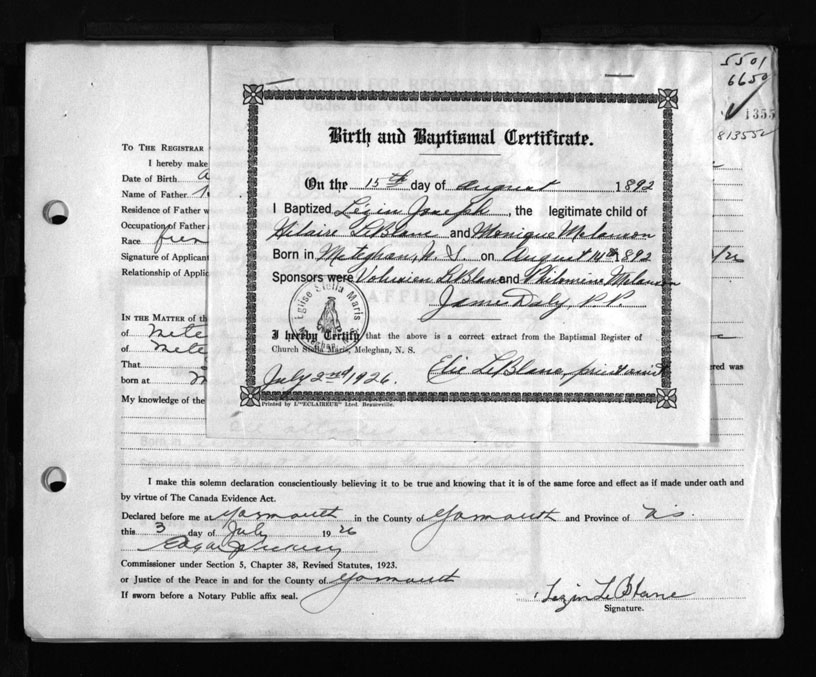 5501
6650
1355
813552
Birth and Baptismal Certificate.
On the 15th day of August 1892
I Baptized Lézin Joseph, the legitimate child of
Hilaire LeBlanc and Monique Melanson
Born in Meteghan, N. S. on August 14th 1892
Sponsors were Volusien LeBlanc and Philomine Melanson
James Daly, P. P.
Eglise Stella Maris
Meteghan
I hereby Certify that the above is a correct extract from the Baptismal Register of
Church Stella Maris, Meleghan, N. S.
July 2nd, 1926. Elie LeBlanc, priest
Printed by L'"ECLAIREUR" Lted. Beauceville.
TO THE REGISTRAR
I hereby make
Date of Birth
Name of Father
Residence of Father
Occupation of Father
Race
Signature of Applicant
Relationship of Applic
IN THE MATTER of th
of Mete
of Mete
That
born at M
ered was
My knowledge of the
I make this solemn declaration conscientiously believing it to be true and knowing that it is of the same force and effect as if made under oath and
by virtue of The Canada Evidence Act.
Declared before me at Yarmouth in the County of Yarmouth and Province of N.S.
this 3 day of July 1926
Commissioner under Section 5, Chapter 38, Revised Statutes, 1923.
or Justice of the Peace in and for the County of Yarmouth
If sworn before a Notary Public affix seal.
Lezin LeBlanc
Signature.